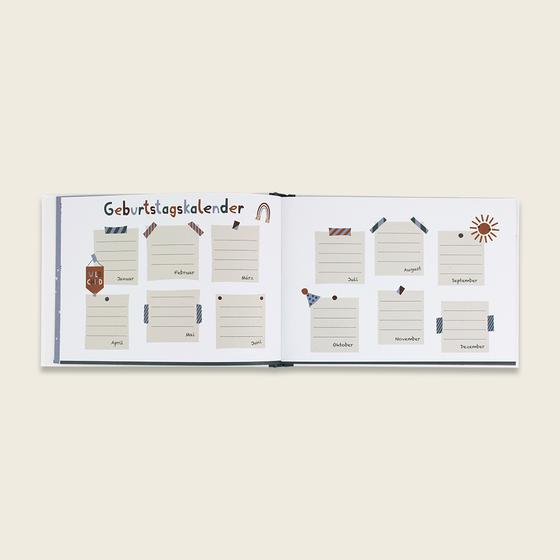 Geburtstagskalender
Januar
Februar
März
April
Mai
Juni
Juli
August
September
Oktober
November
Dezember